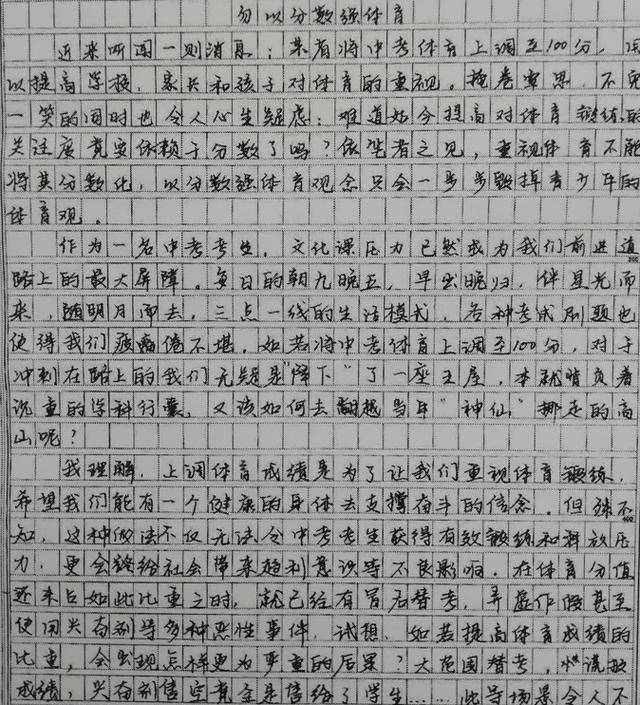 勿以分数强体育
近来听闻一则消息：某省将中考体育上调至100分，用
以提高学校、家长和孩子对体育的重视。掩卷窜思，不免
一笑的同时也令人心生疑虑：难道如今提高对体育锻练的
关注度竟要依赖于分数了吗？依笔者之见，重视体育不能
将其分数化，以分数强体育观念只会一步步毁掉青少年的
体育观。
作为一名中考考生，文化课压力已然成为我们前进道
路上的最大屏障。每日的朝九晚五，早出晚归，伴星光而
来，随明月而去，三点一线的生活模式，各种考试刷题也
使得我们疲惫不堪。如若将中考体育上调至100分，对于
冲刺在路上的我们无疑是"降下"了一座王屋，本就背负着
沉重的学科行囊，又该如何去翻越当年"神仙"挪走的高
山呢？
我理解，上调体育成绩是为了让我们重视体育锻练，
希望我们能有一个健康的身体去支撑奋斗的信念。但殊不
知，这种做法不仅无法令中考考生获得有效锻练和释放压
力，更会给社会带来趋利意识等不良影响。在体育分值
还未占如此比重之时，就已经有冒名替考，弄虚作假甚至
使用兴奋剂等多种恶性事件，试想，如若提高体育成绩的
比重，会出现怎样更为严重的后果？大范围替考，谎报
成绩，兴奋剂售空竟全是售给了学生……此等场景令人不